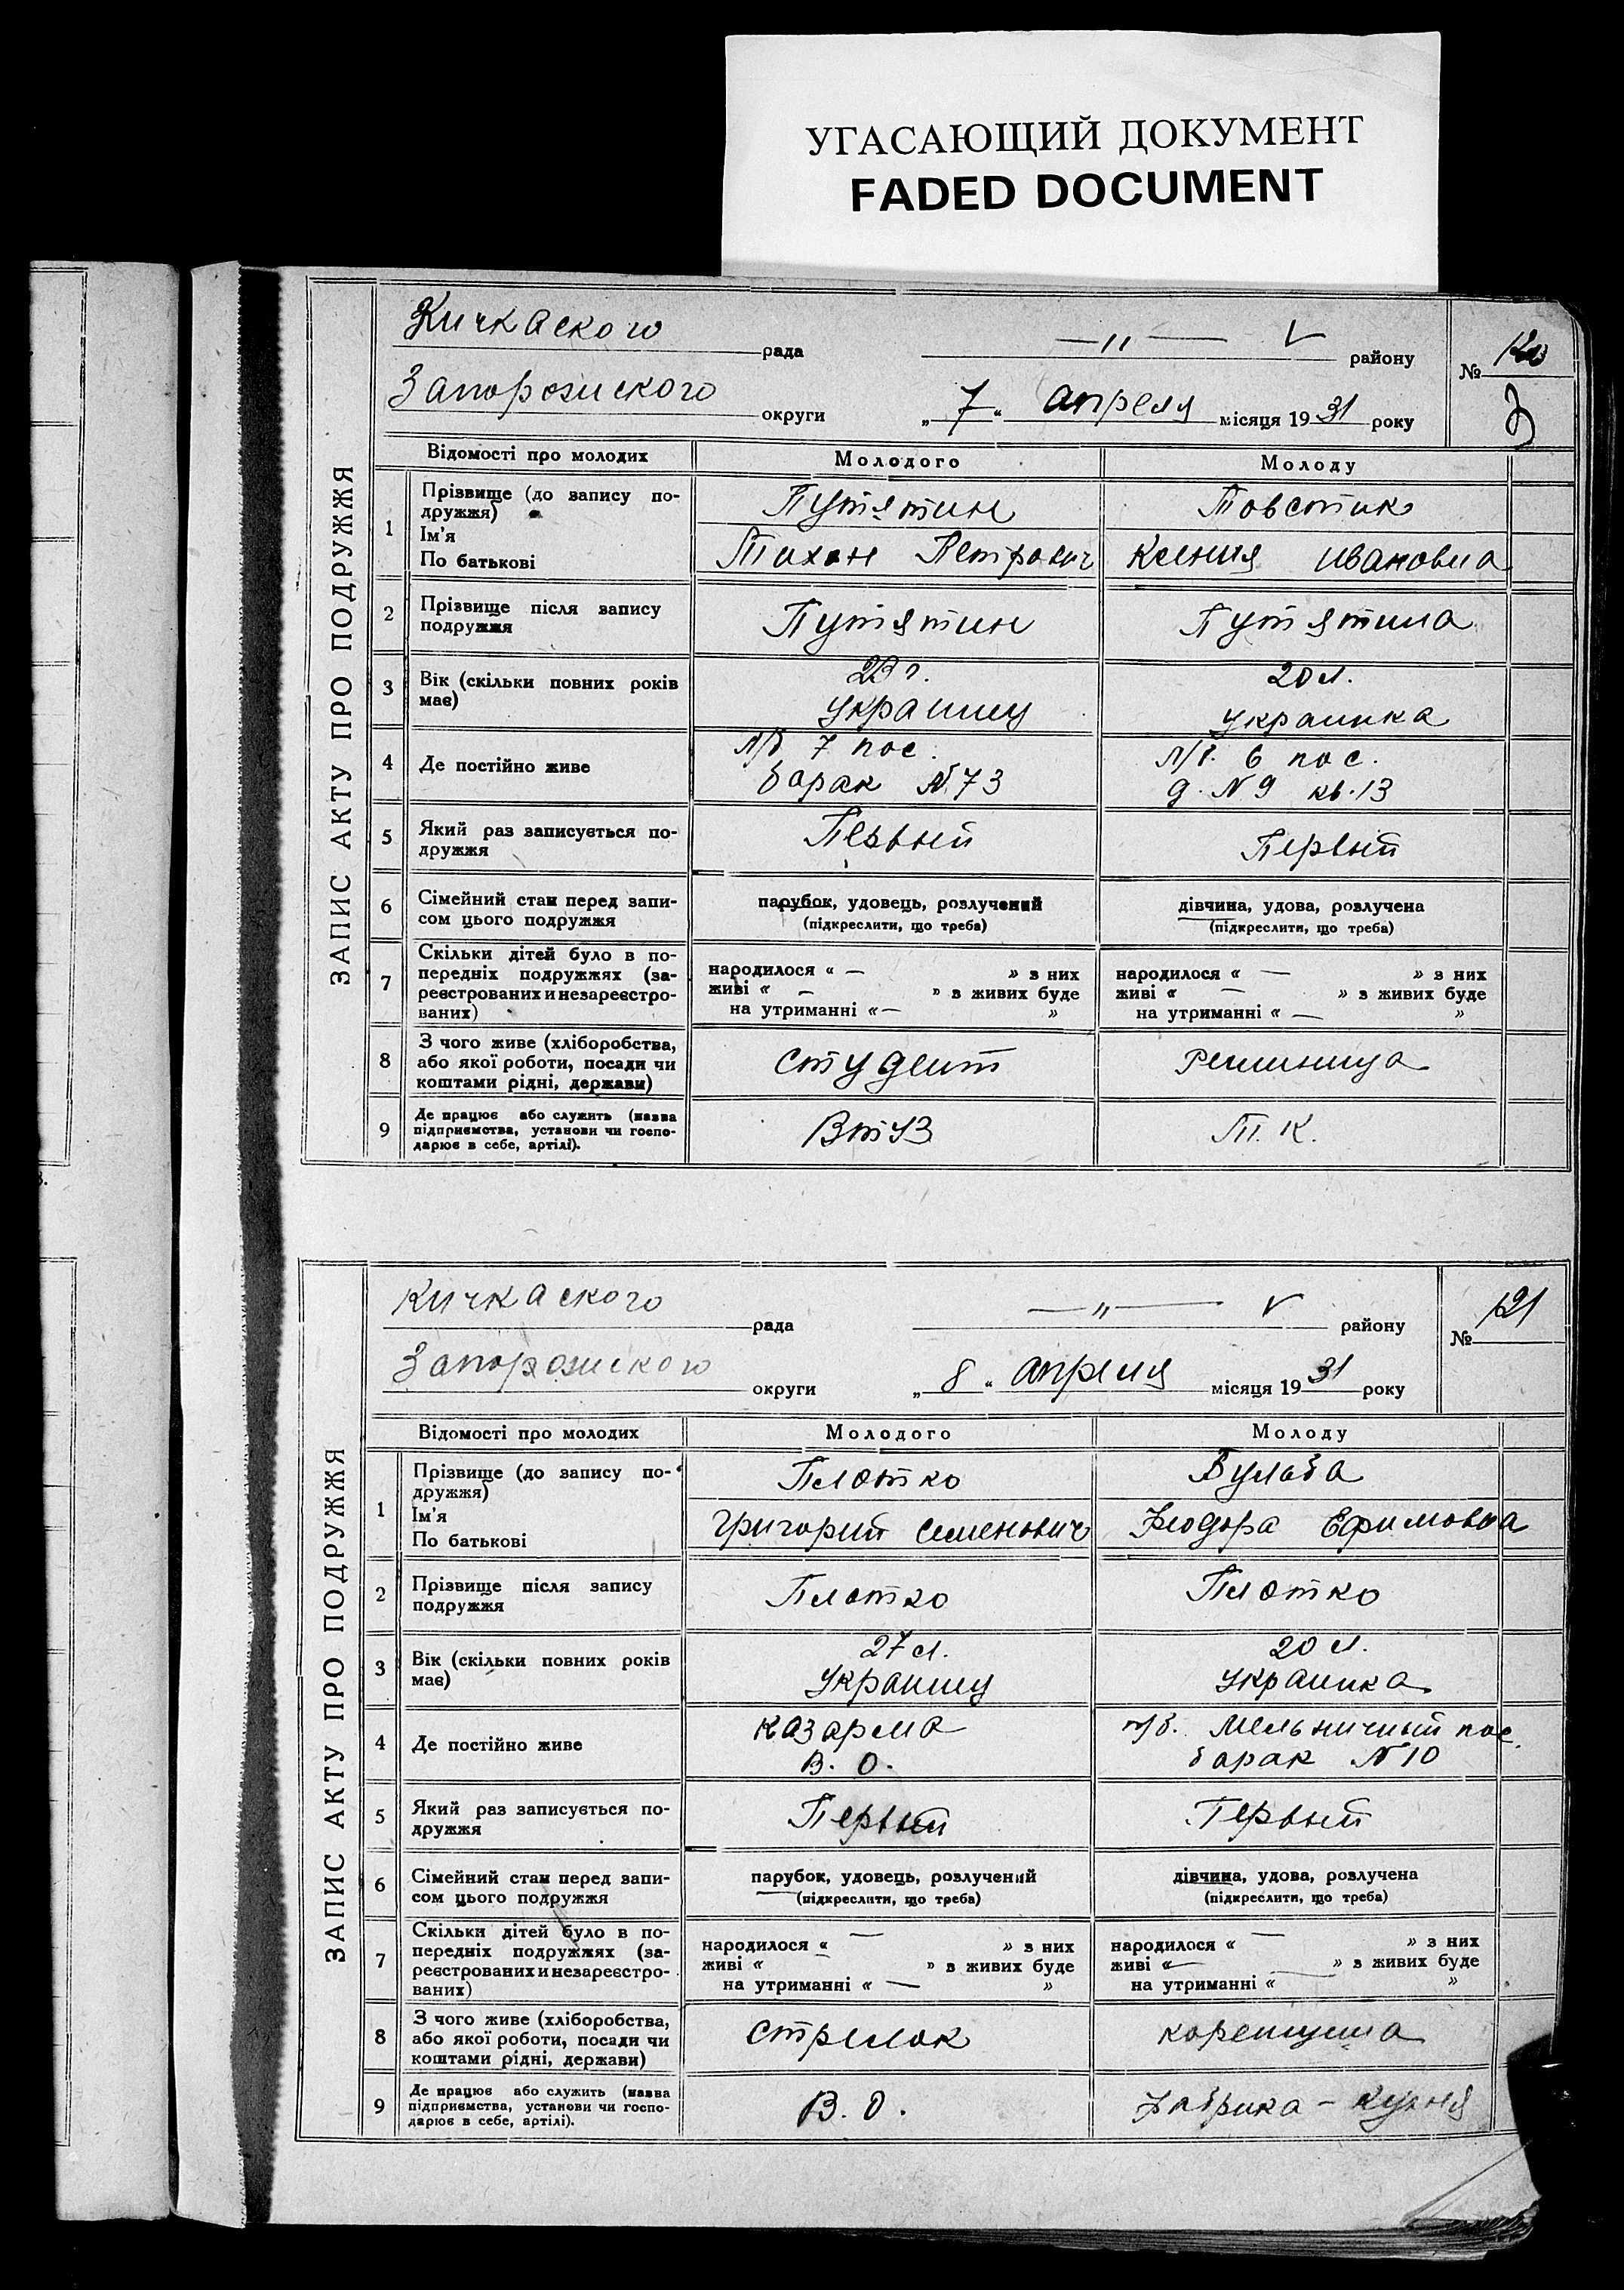 УГАСАЮЩИЙ ДОКУМЕНТ
FADED DOCUMENT
ЗАПИС АКТУ ПРО ПОДРУЖЖЯ
Кичкаского рада —〃— V району
№ 120
Запорожского округи „7“ апреля місяця 1931 року
Відомості про молодих Молодого Молоду
1 Прізвище (до запису по-
дружжя)
Ім'я
По батькові
Путятин Товстик
Тихон Петрович Ксения Ивановна
2 Прізвище після запису
подружжя
Путятин Путятина
3 Вік (скільки повних років
має)
23 г. 20 л.
Украинец украинка
4 Де постійно живе
п/б 7 пос. п/б. 6 пос.
барак №73 д. №9 кв. 13
5 Який раз записується по-
дружжя
Первый Первый
6 Сімейний стан перед запи-
сом цього подружжя
парубок, удовець, розлучений дівчина, удова, розлучена
(підкреслити, що треба) (підкреслити, що треба)
7 Скільки дітей було в по-
передніх подружжях (за-
реєстрованих и незареєстро-
ваних)
народилося “ — ” з них народилося “ — ” з них
живі “ — ” з живих буде живі “ — ” з живих буде
на утриманні “ — ” на утриманні “ — ”
8 З чого живе (хліборобства,
або якої роботи, посади чи
коштами рідні, держави)
студент
9 Де працює або служить (назва
підприємства, установи чи госпо-
дарює в себе, артілі).
ВтУЗ Т. К.
ЗАПИС АКТУ ПРО ПОДРУЖЖЯ
Кичкаского рада —〃— V району
№ 121
Запорожского округи „8“ апреля місяця 1931 року
Відомості про молодих Молодого Молоду
1 Прізвище (до запису по-
дружжя)
Ім'я
По батькові
Плотко Бульба
Григорий Семенович Феодора Ефимовна
2 Прізвище після запису
подружжя
Плотко Плотко
3 Вік (скільки повних років
має)
27 л. 20 л.
Украинец украинка
4 Де постійно живе
казарма п/б. Мельничный пос.
В. О. барак №10
5 Який раз записується по-
дружжя
Первый Первый
6 Сімейний стан перед запи-
сом цього подружжя
парубок, удовець, розлучений дівчина, удова, розлучена
(підкреслити, що треба) (підкреслити, що треба)
7 Скільки дітей було в по-
передніх подружжях (за-
реєстрованих и незареєстро-
ваних)
народилося “ — ” з них народилося “ — ” з них
живі “ — ” з живих буде живі “ — ” з живих буде
на утриманні “ — ” на утриманні “ — ”
8 З чого живе (хліборобства,
або якої роботи, посади чи
коштами рідні, держави)
стрелок
9 Де працює або служить (назва
підприємства, установи чи госпо-
дарює в себе, артілі).
В. О. Фабрика – кухня